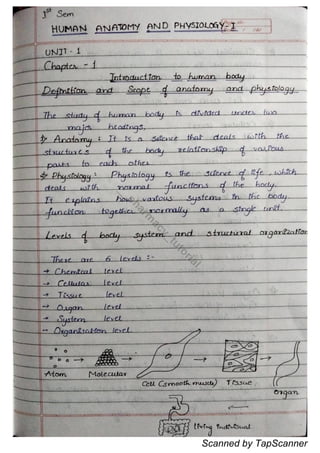 1st Sem
HUMAN ANATOMY AND PHYSIOLOGY-I
UNIT - 1
Chapter - 1
Introduction to human body
Definition and Scope of anatomy and physiology
The study of human body is divided under two
major headings,
Anatomy : It is a science that deals with the
structures of the body relationship of various
parts to each other
Physiology : Physiology is the science of life, which
deals with normal functions of the body.
It explains how various systems in the body
function together normally as a single unit.
Levels of body system and structural organization
There are 6 levels :-
→ Chemical level
→ Cellular level
→ Tissue level
→ Organ level
→ System level
→ Organization level
Atom Molecular Cell (smooth muscle) Tissue Organ
living individual
pharmacy tutorial
Scanned by TapScanner